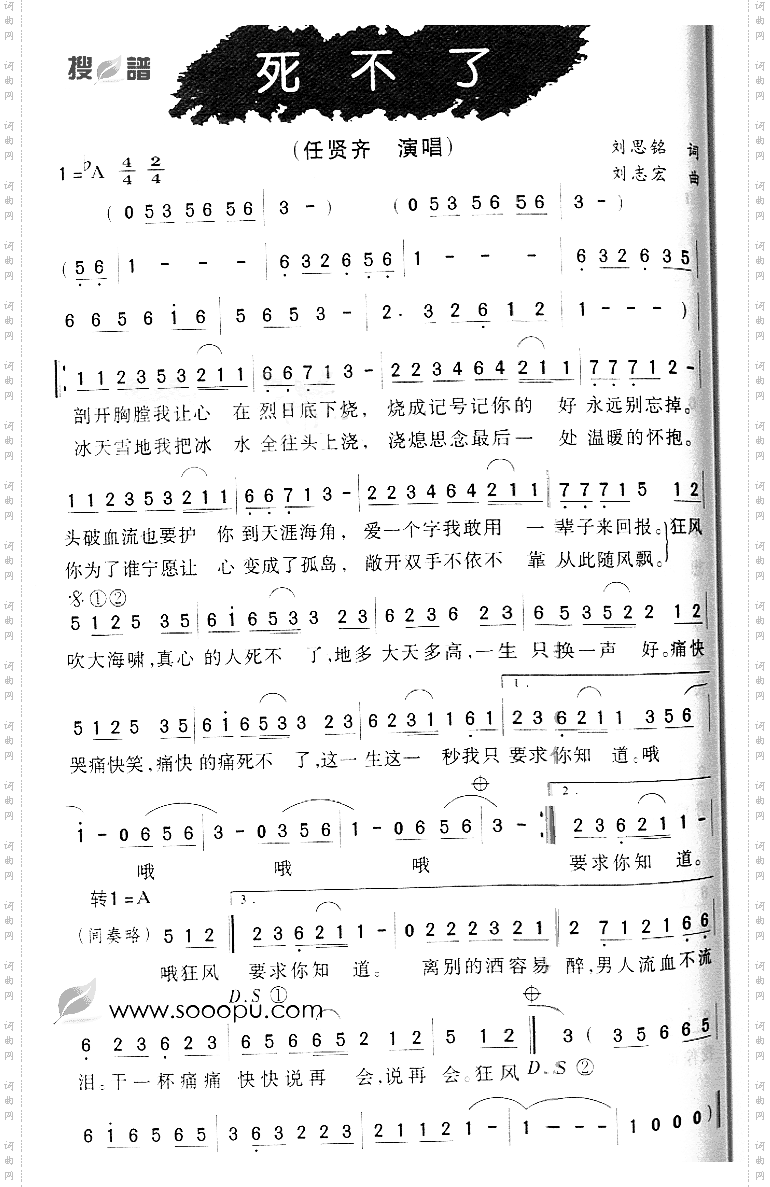 搜 譜
死不了
(任贤齐 演唱)
刘思铭 词
刘志宏 曲
1=♭A 4/4 2/4
(0 5 3 5 6 5 6 | 3 - ) (0 5 3 5 6 5 6 | 3 - )
(5 6 | 1 - - - | 6 3 2 6 5 6 | 1 - - - | 6 3 2 6 3 5
6 6 5 6 1 6 | 5 6 5 3 - | 2. 3 2 6 1 2 | 1 - - - )
1 1 2 3 5 3 2 1 1 | 6 6 7 1 3 - | 2 2 3 4 6 4 2 1 1 | 7 7 7 1 2 -
剖开胸膛我让心 在 烈日底下烧, 烧成记号记你的 好 永远别忘掉。
冰天雪地我把冰 水 全往头上浇, 浇熄思念最后一 处 温暖的怀抱。
1 1 2 3 5 3 2 1 1 | 6 6 7 1 3 - | 2 2 3 4 6 4 2 1 1 | 7 7 7 1 5 1 2
头破血流也要护 你 到天涯海角, 爱一个字我敢用 一 辈子来回报。狂风
你为了谁宁愿让 心 变成了孤岛, 敞开双手不依不 靠 从此随风飘。
𝄋 ①②
5 1 2 5 3 5 | 6 1 6 5 3 3 2 3 | 6 2 3 6 2 3 | 6 5 3 5 2 2 1 2
吹大海啸,真心 的人死不 了,地多 大天多高,一生 只换一声 好。痛快
5 1 2 5 3 5 | 6 1 6 5 3 3 2 3 | 6 2 3 1 1 6 1 | 2 3 6 2 1 1 3 5 6
1.
哭痛快笑,痛快 的痛死不 了,这一生这一 秒我只 要求你知 道。哦
1 - 0 6 5 6 | 3 - 0 3 5 6 | 1 - 0 6 5 6 | 3 - :| 2 3 6 2 1 1 -
2.
哦 哦 哦 要求你知 道。
转1=A
(间奏略) 5 1 2 ‖ 2 3 6 2 1 1 - | 0 2 2 2 3 2 1 | 2 7 1 2 1 6 6
3.
哦狂风 要求你知 道。 离别的酒容易 醉,男人流血不流
D.S ①
www.sooopu.com
6 2 3 6 2 3 | 6 5 6 6 5 2 1 2 | 5 5 1 2 ‖ 3 ( 3 5 6 6 5
泪;干一杯痛痛 快快说再 会,说再 会。狂风
D.S ②
6 1 6 5 6 5 | 3 6 3 2 2 3 | 2 1 1 2 1 1 - | 1 - - - | 1 0 0 0 )
词曲网